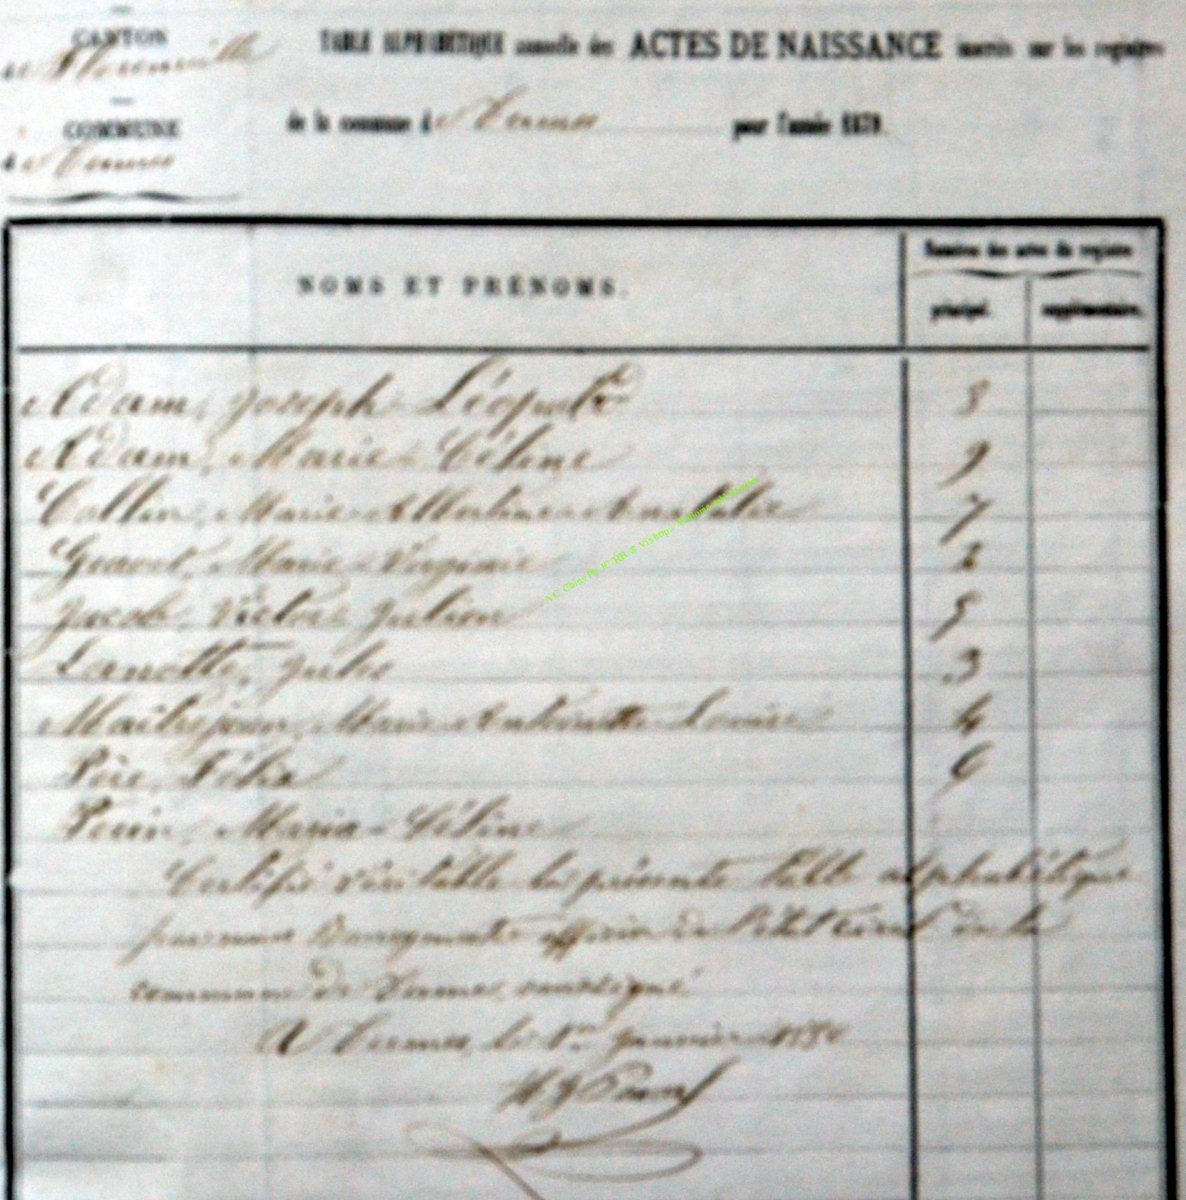 CANTON
de Florenville
TABLE ALPHABÉTIQUE annuelle des ACTES DE NAISSANCE inscrits sur les registres
COMMUNE
de la commune d pour l'année 1879.
NOMS ET PRÉNOMS.
Numéros des actes du registre
principal. supplémentaire.
Adam, Joseph Léopold 8
Adam, Marie Céline 9
Collin, Marie Albertine 7
Marie Virginie 2
Jacob, Victor Julien 5
Lanotte, Jules 3
Maîtrejean, Marie Antoinette Louise 4
Père, Félix 6
Maria Céline
Certifié véritable la présente table alphabétique
par nous Bourgmestre officier de l'état civil de la
commune de Termes, soussigné.
A Termes, le 1er Janvier